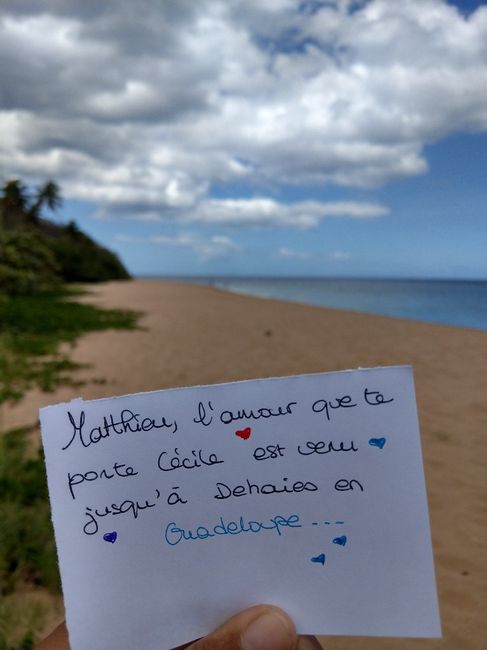 Matthieu, l'amour que te
porte Cécile est venu
jusqu'à Dehaies en
Guadeloupe...